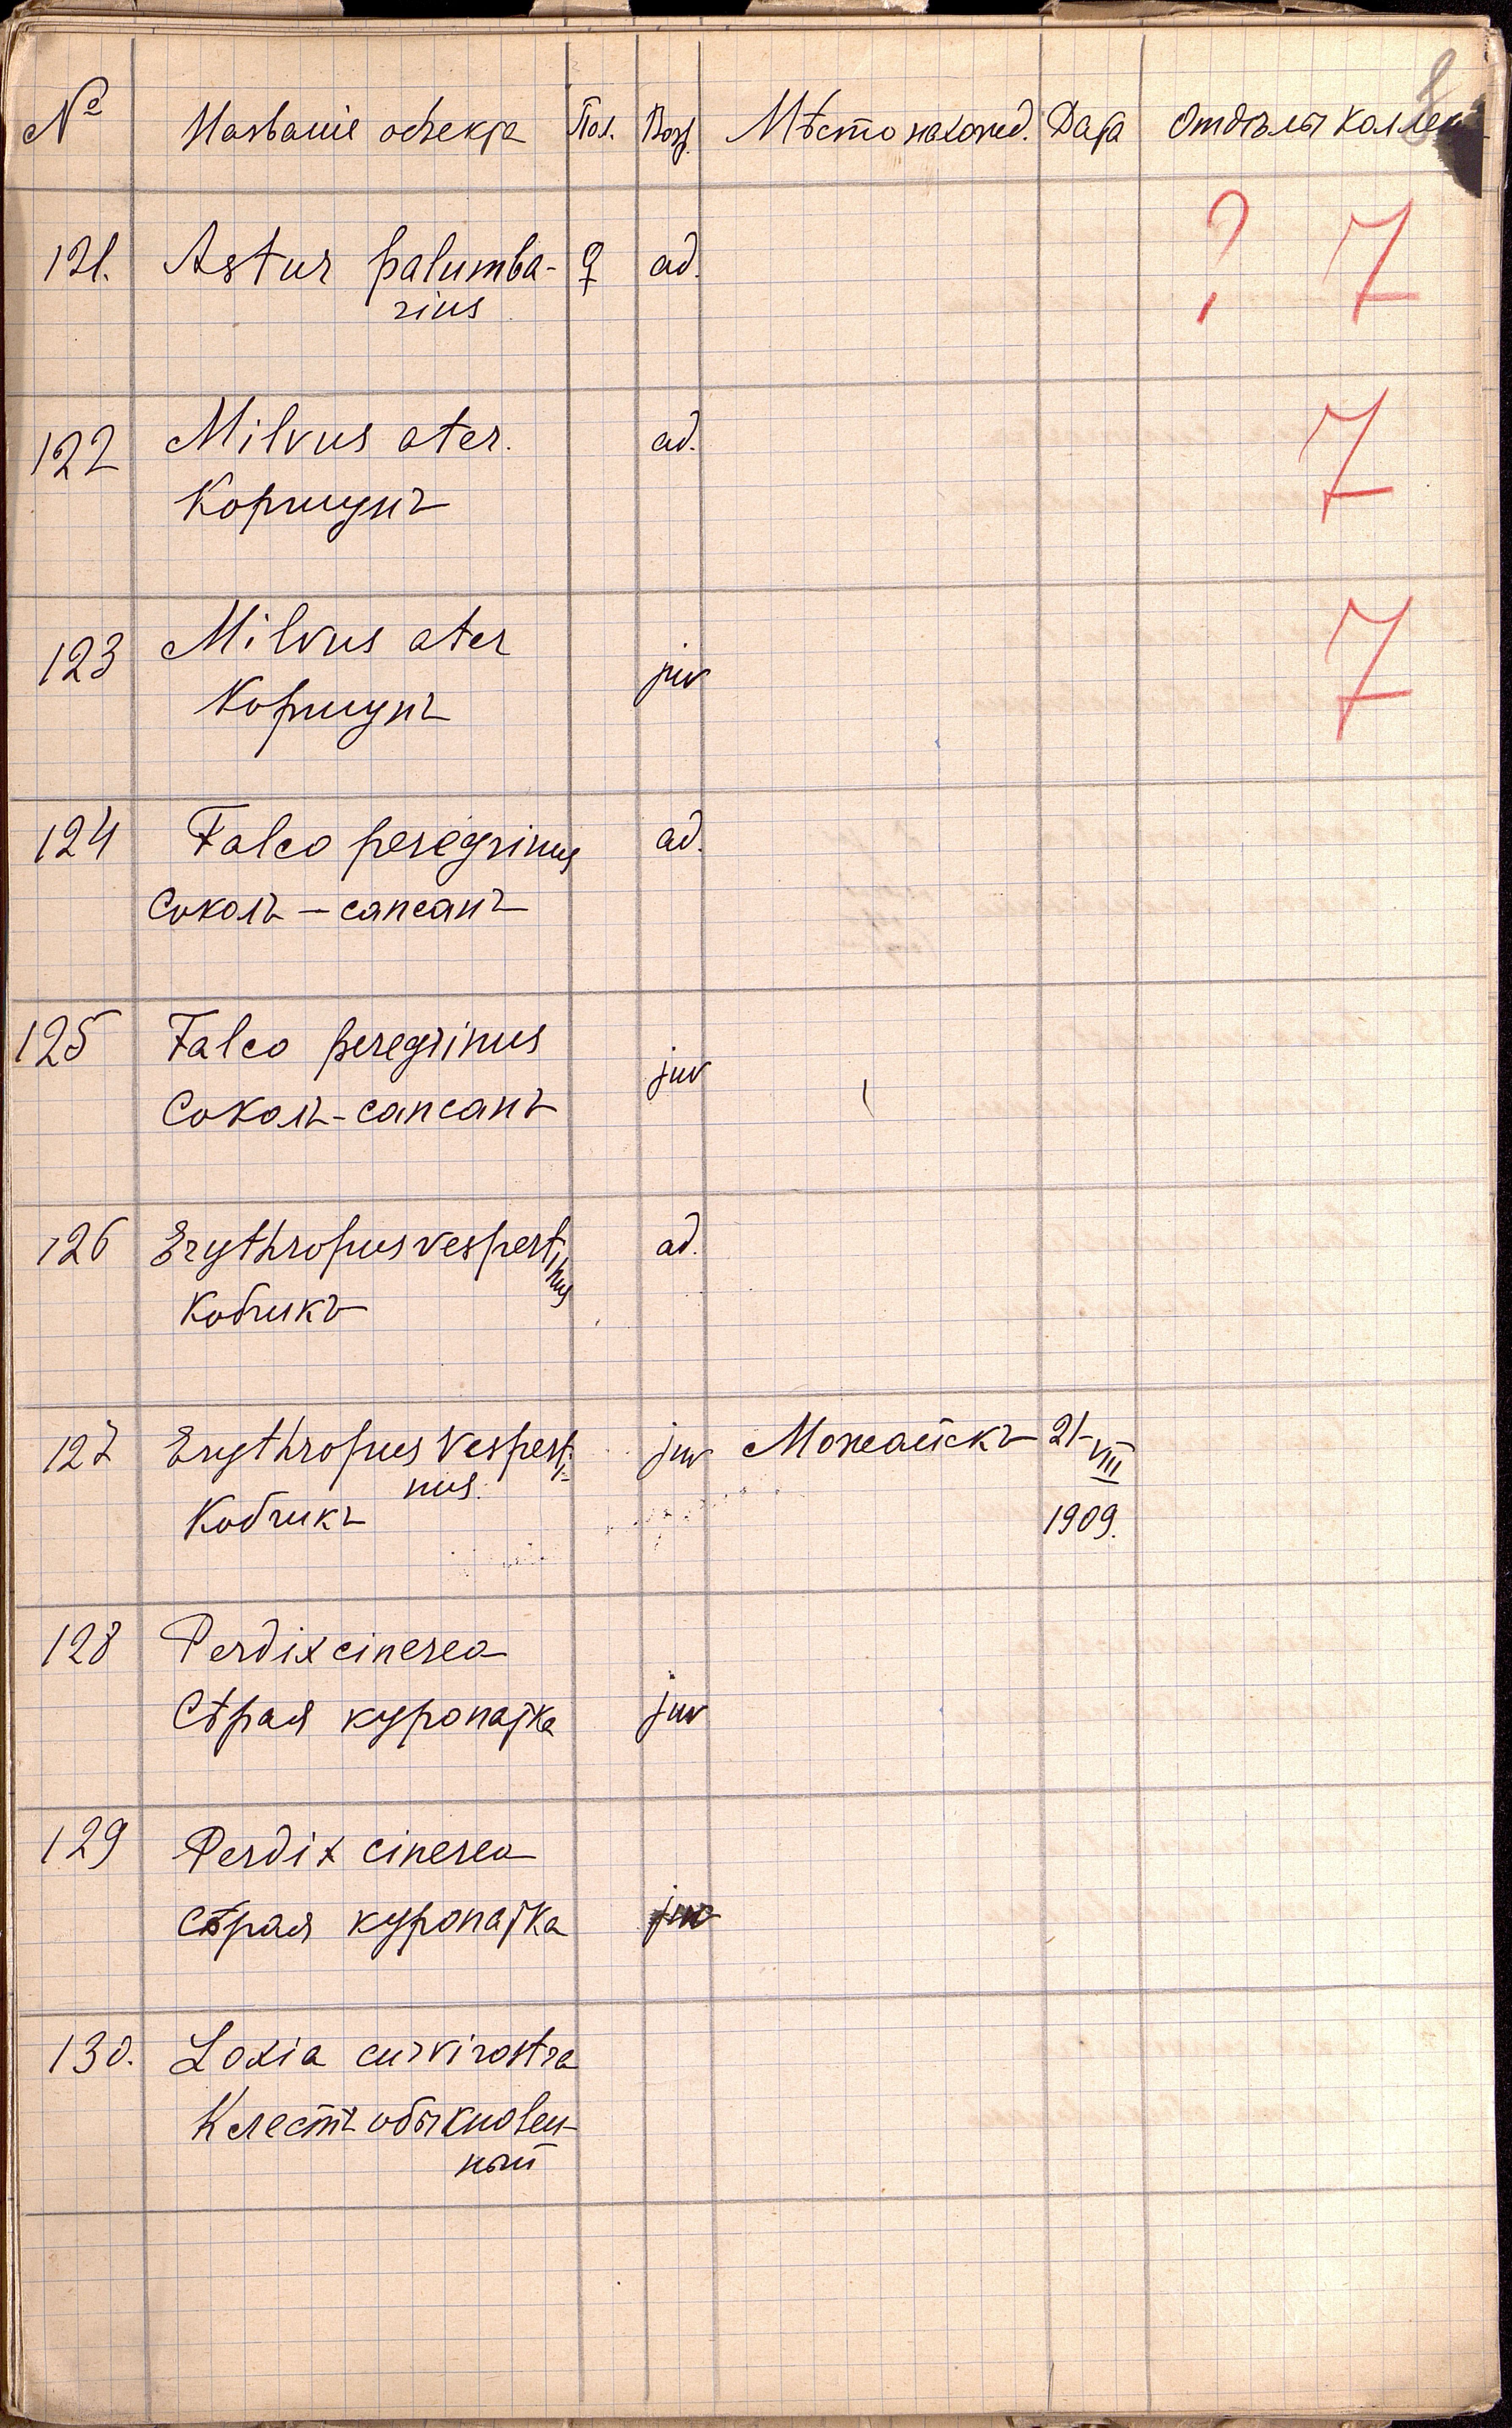 8
№ Названіе объекта Пол. Возр. Мѣсто нахожд. Дата Отдѣлы коллек
121. Astur palumba- ♀ ad. ? 7
rius
122 Milvus ater. ad. 7
Коршунъ
123 Milvus ater juv 7
Коршунъ
124 Falco peregrinus ad.
Соколъ - сапсанъ
125 Falco peregrinus juv
Соколъ - сапсанъ
126 Erythropus vespertinus ad.
Кобчикъ
127 Erythropus vesperti- juv Можайскъ 21-VIII
nus.
Кобчикъ 1909.
128 Perdix cinerea
Сѣрая куропатка juv
129 Perdix cinerea
Сѣрая куропатка juv
130. Loxia curvirostra
Клестъ обыкновен-
ный